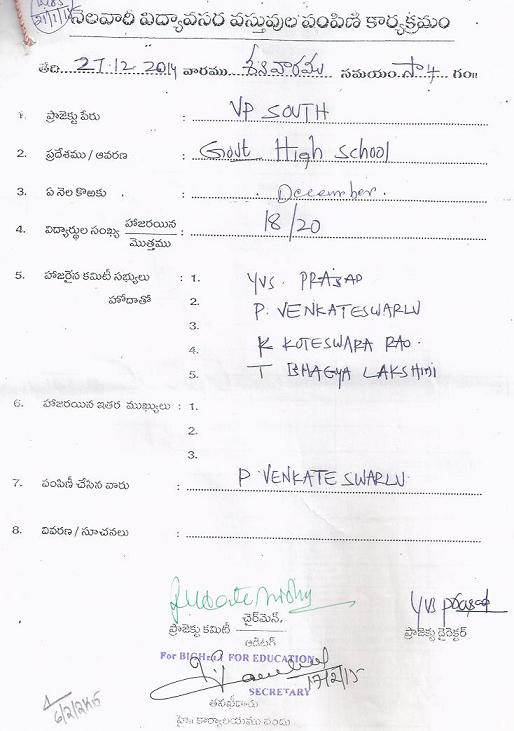 నెలవారీ విద్యావసర వస్తువుల పంపిణీ కార్యక్రమం
తేది 27.12.2014 వారము శనివారము సమయం సా 4 గం॥
1. ప్రాజెక్టు పేరు : VP SOUTH
2. ప్రదేశము / ఆవరణ : Govt High School
3. ఏ నెల కొఱకు : December.
4. విద్యార్థుల సంఖ్య హాజరయిన / మొత్తము : 18/20
5. హాజరైన కమిటీ సభ్యులు : 1. YVS. PRASAD
హోదాతో 2. P. VENKATESWARLU
3.
4. K KOTESWARA RAO.
5. T BHAGYA LAKSHMI
6. హాజరయిన ఇతర ముఖ్యులు : 1.
2.
3.
7. పంపిణీ చేసిన వారు : P. VENKATESWARLU
8. వివరణ / సూచనలు :
YVS Prasad
ప్రాజెక్టు కమిటీ ఛైర్మెన్, ప్రాజెక్టు డైరెక్టర్
ఆడిటర్
For BIGHelp FOR EDUCATION
17/2/15
SECRETARY
6/2/2015
తనిఖీదారు
హై॥ కార్యాలయము నందు